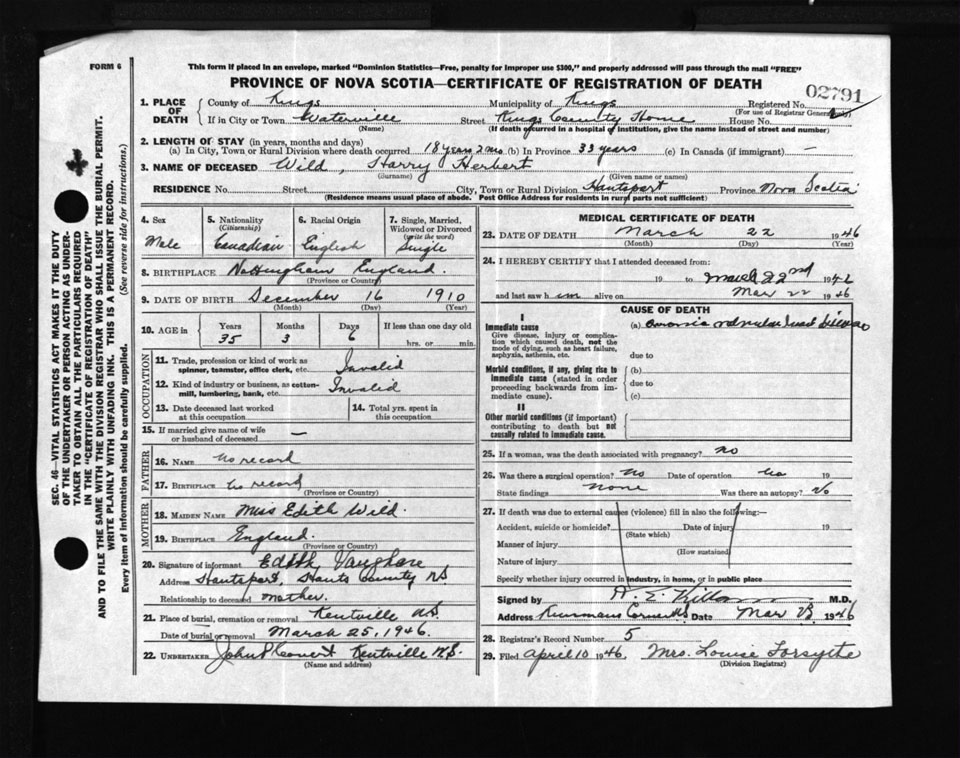 FORM 6
This form if placed in an envelope, marked "Dominion Statistics—Free, penalty for improper use $300," and properly addressed will pass through the mail "FREE"
PROVINCE OF NOVA SCOTIA—CERTIFICATE OF REGISTRATION OF DEATH
02791
1. PLACE OF DEATH { County of Kings Municipality of Kings Registered No.
(For use of Registrar General only)
If in City or Town Waterville Street Kings County Home House No.
(Name) (If death occurred in a hospital of institution, give the name instead of street and number)
2. LENGTH OF STAY (in years, months and days)
(a) In City, Town or Rural Division where death occurred 18 years 2 mo (b) In Province 33 years (c) In Canada (if immigrant) —
3. NAME OF DECEASED Wild, Harry Herbert
(Surname) (Given name or names)
RESIDENCE No. Street City, Town or Rural Division Hantsport Province Nova Scotia
(Residence means usual place of abode. Post Office Address for residents in rural parts not sufficient)
4. Sex
Male
5. Nationality
(Citizenship)
Canadian
6. Racial Origin
English
7. Single, Married, Widowed or Divorced
(write the word)
Single
8. BIRTHPLACE Nottingham England.
(Province or Country)
9. DATE OF BIRTH December 16 1910
(Month) (Day) (Year)
10. AGE in Years Months Days If less than one day old
35 3 6 hrs. or min.
OCCUPATION
11. Trade, profession or kind of work as spinner, teamster, office clerk, etc. Invalid
12. Kind of industry or business, as cotton-mill, lumbering, bank, etc. Invalid
13. Date deceased last worked at this occupation
14. Total yrs. spent in this occupation
15. If married give name of wife or husband of deceased —
FATHER
16. NAME no record
17. BIRTHPLACE no record
(Province or Country)
MOTHER
18. MAIDEN NAME Miss Edith Wild.
19. BIRTHPLACE England.
(Province or Country)
20. Signature of informant Edith
Address Hantsport, Hants County NS
Relationship to deceased mother.
21. Place of burial, cremation or removal Kentville N.S.
Date of burial or removal March 25, 1946.
22. UNDERTAKER John Kentville N.S.
(Name and address)
MEDICAL CERTIFICATE OF DEATH
23. DATE OF DEATH March 22 1946
(Month) (Day) (Year)
24. I HEREBY CERTIFY that I attended deceased from:
19 to March 22nd 1946
and last saw him alive on Mar 22 1946
CAUSE OF DEATH
I
Immediate cause
Give disease, injury or complication which caused death, not the mode of dying, such as heart failure, asphyxia, asthenia, etc.
(a)
due to
Morbid conditions, if any, giving rise to immediate cause (stated in order proceeding backwards from immediate cause).
(b)
due to
(c)
II
Other morbid conditions (if important) contributing to death but not causally related to immediate cause.
25. If a woman, was the death associated with pregnancy? no
26. Was there a surgical operation? No Date of operation no 19
State findings none Was there an autopsy? No
27. If death was due to external causes (violence) fill in also the following:—
Accident, suicide or homicide? Date of injury 19
(State which)
Manner of injury
(How sustained)
Nature of injury
Specify whether injury occurred in industry, in home, or in public place
Signed by M.D.
Address Date Mar 1946
28. Registrar's Record Number 5
29. Filed April 10 1946 Mrs. Louise Forsythe
(Division Registrar)
SEC. 46—VITAL STATISTICS ACT MAKES IT THE DUTY
OF THE UNDERTAKER OR PERSON ACTING AS UNDER-
TAKER TO OBTAIN ALL THE PARTICULARS REQUIRED
IN THE "CERTIFICATE OF REGISTRATION OF DEATH"
AND TO FILE THE SAME WITH THE DIVISION REGISTRAR WHO SHALL ISSUE THE BURIAL PERMIT.
WRITE PLAINLY WITH UNFADING INK. THIS IS A PERMANENT RECORD.
Every item of information should be carefully supplied. (See reverse side for instructions.)